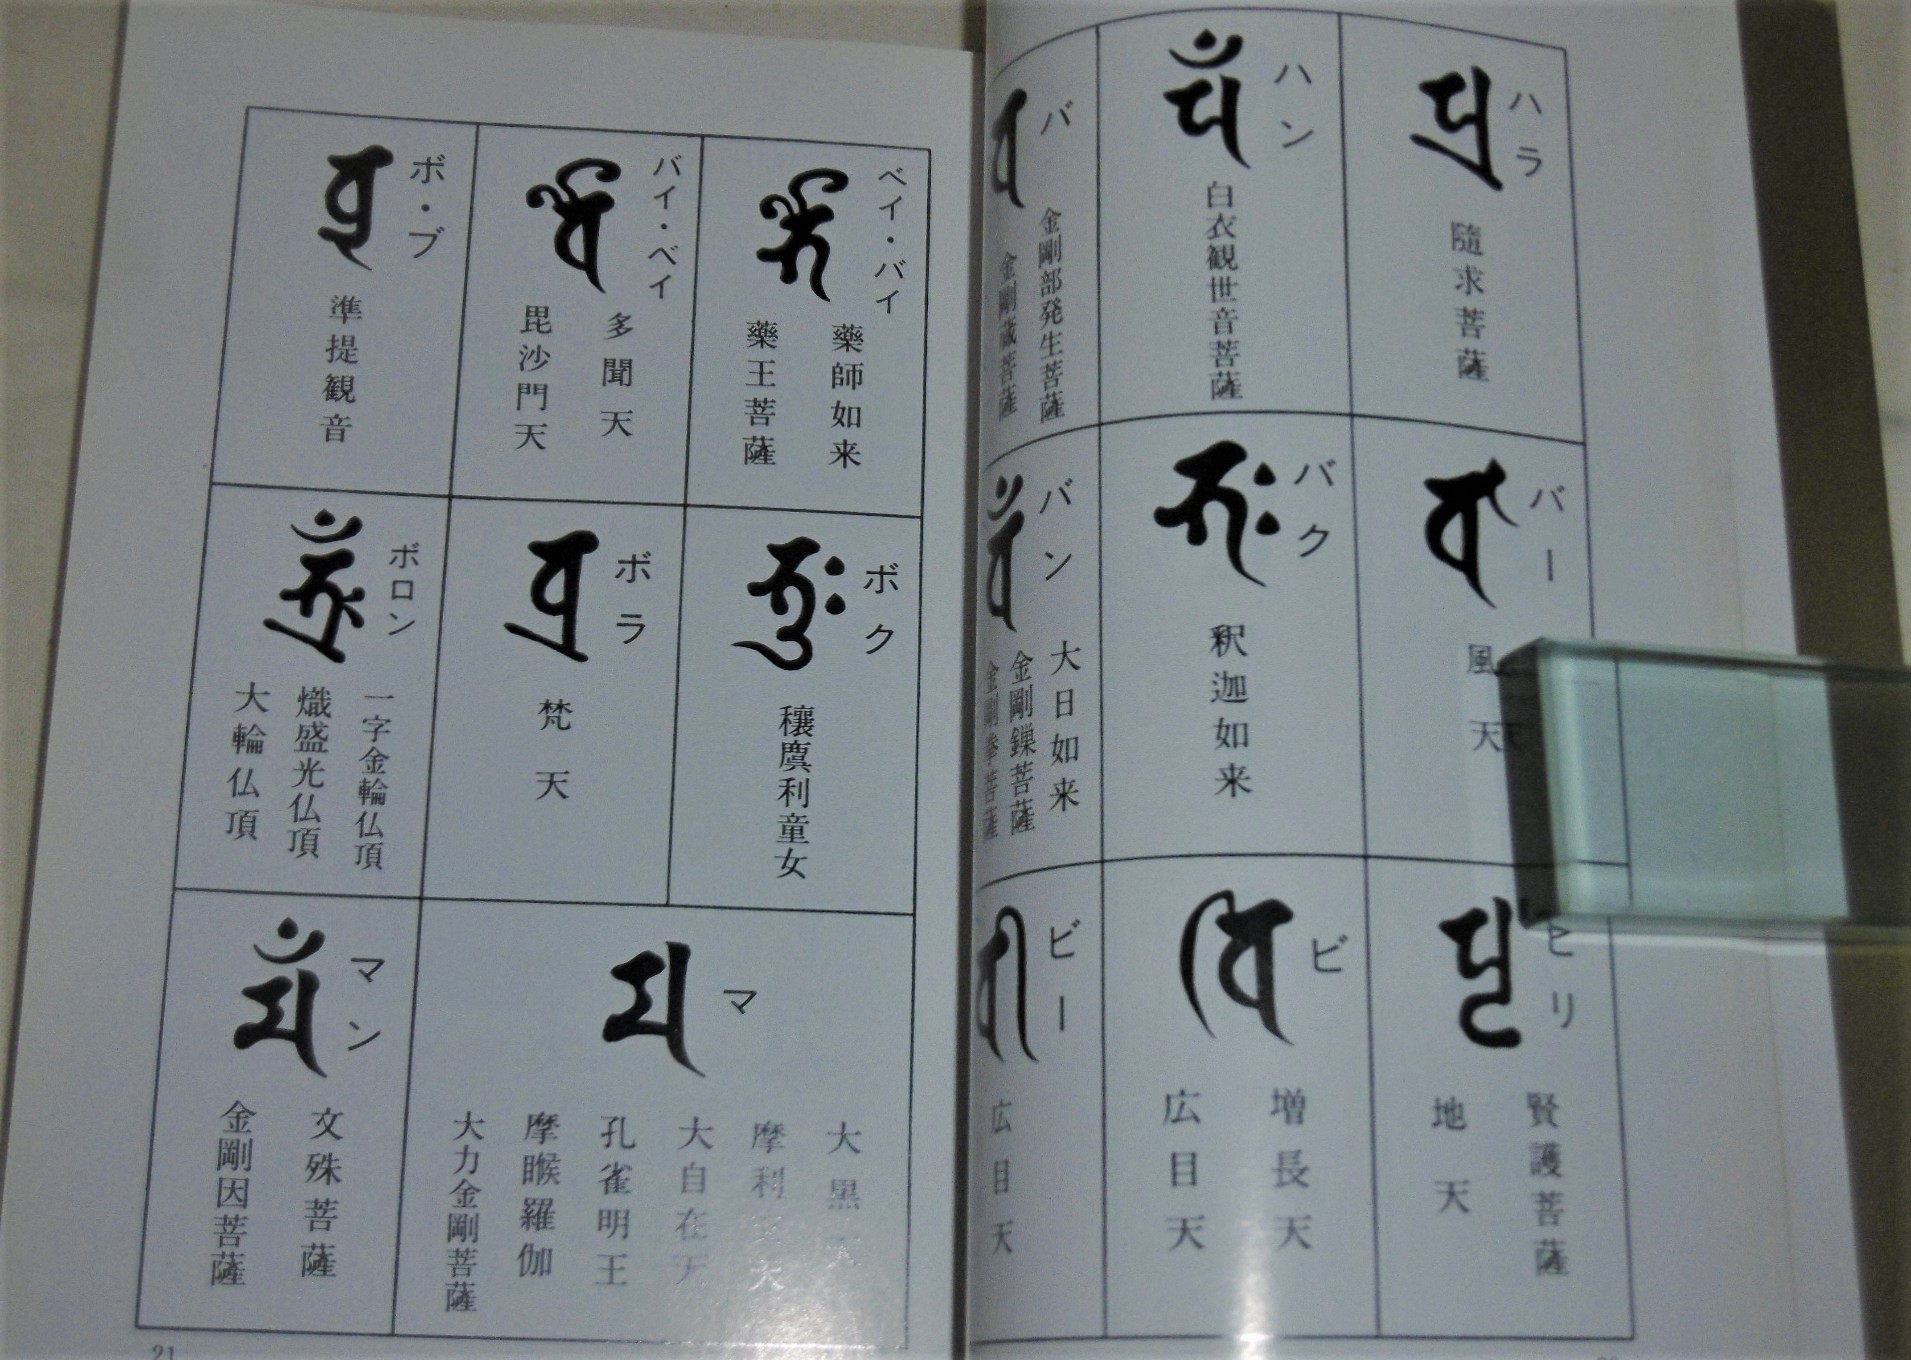 ハラ
隨求菩薩
ハン
白衣観世音菩薩
バ
金剛部発生菩薩
金剛蔵菩薩
バー
風天
バク
釈迦如来
バン
大日如来
金剛鏁菩薩
金剛拳菩薩
ヒリ
賢護菩薩
地天
ビ
増長天
広目天
ビー
広目天
ベイ・バイ
藥師如来
藥王菩薩
バイ・ベイ
多聞天
毘沙門天
ボ・ブ
準提観音
ボク
穰麌利童女
ボラ
梵天
ボロン
一字金輪仏頂
熾盛光仏頂
大輪仏頂
マ
大黒天
摩利
大自在天
孔雀明王
摩睺羅伽
大力金剛菩薩
マン
文殊菩薩
金剛因菩薩
21